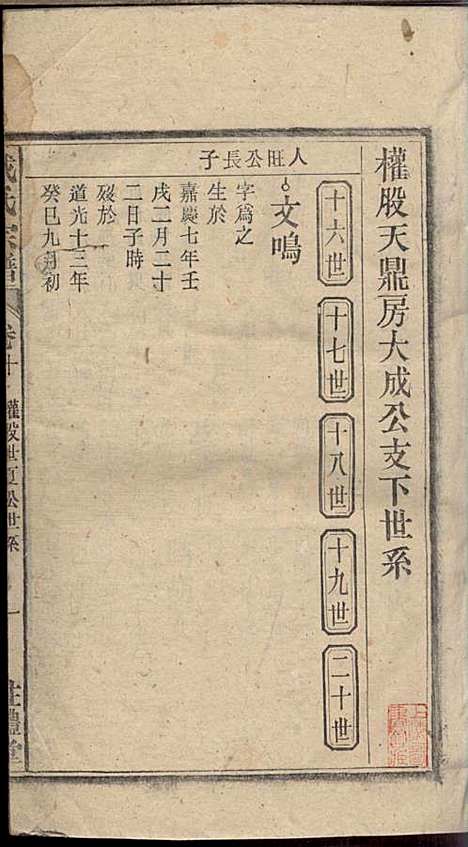 權股天鼎房大成公支下世系
十六世
十七世
十八世
十九世
二十世
人旺公長子
文鳴
字爲之
生於
嘉慶七年壬
戌二月二十
二日子時
歿於
道光十三年
癸巳九月初
氏宗譜
卷十
權股世
公世系
一
禮堂